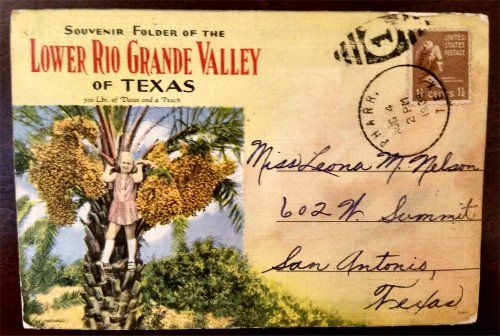 SOUVENIR FOLDER OF THE
LOWER RIO GRANDE VALLEY
OF TEXAS
500 Lbs. of Dates and a Peach
1
UNITED STATES
POSTAGE
1½ CENTS 1½
PHARR,
AUG 4
2 PM
TEX.
Miss Leona M. Nelson
602 W. Summit
San Antonio,
Texas